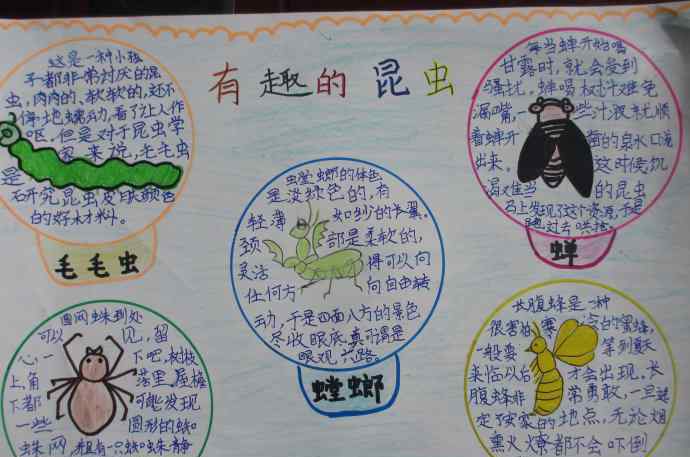 有趣的昆虫
这是一种小孩
子都非常讨厌的昆
虫,肉肉的、软软的,还不
停地蠕动,看了让人作
呕,但是对于昆虫学
家来说,毛毛虫
是
研究昆虫皮肤颜色
的好材料。
毛毛虫
每当蝉开始喝
甘露时,就会受到
强扰,蝉喝树汁难免
漏嘴,一些汁液末顺
着蝉开凿的泉水口流
出来。这时候,饥
渴难当的昆虫
马上发现了这个资源,于是
跑过去哄抢。
蝉
螳螂的体色
是淡绿色的,有
轻薄如纱的长翼。
颈部是柔软的,
灵活得可以向
任何方向自由转
动,于是四面八方的景色
尽收眼底,真可谓是
眼观六路。
螳螂
圆网蛛到处
可以见,留
心一下吧,树枝
上,角落里,屋檐
下都可能发现
一些圆形的蜘
蛛网,并且有一只蜘蛛静
长腹蜂是一种
很害怕寒冷的蜜蜂,
一般要等到夏天
来临以后才会出现。长
腹蜂非常勇敢,一旦选
定了安家的地点,无论烟
熏火燎都不会吓倒